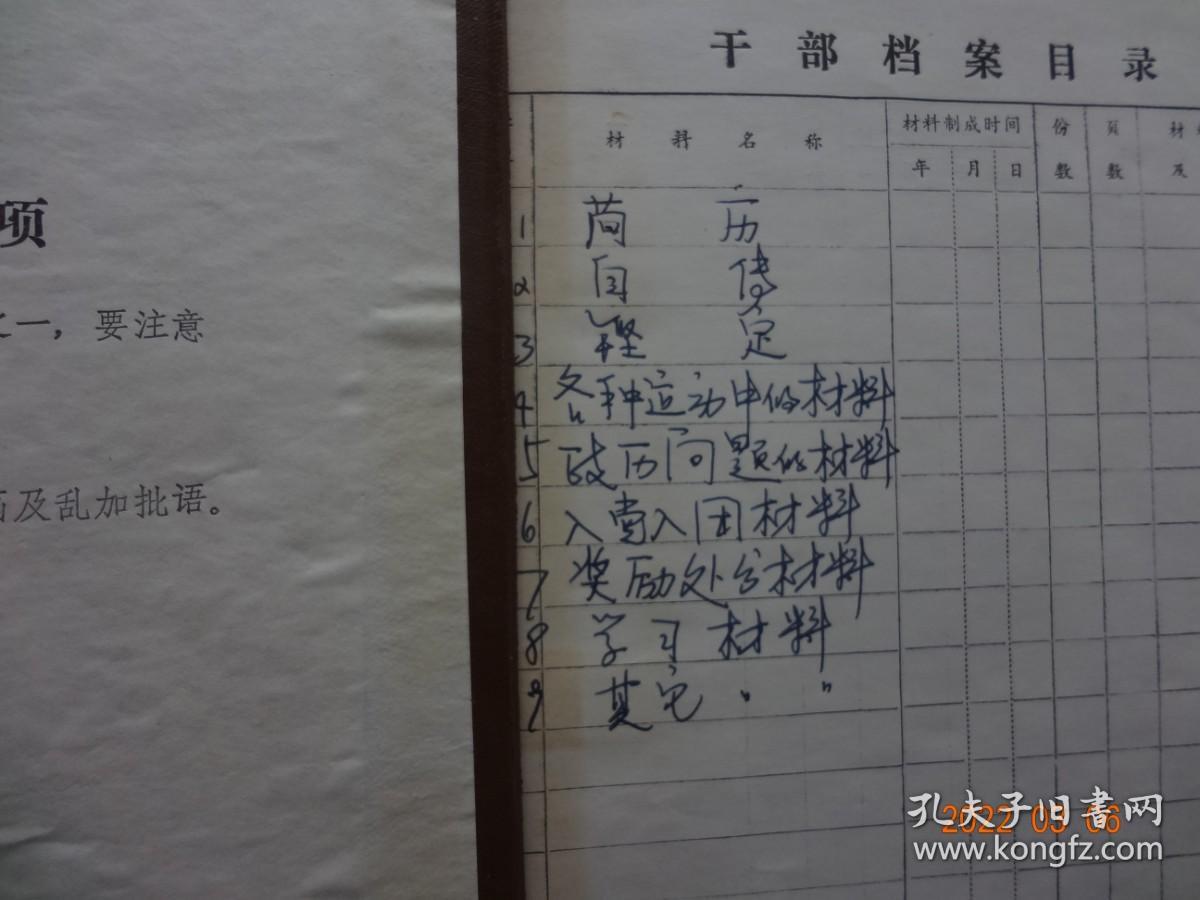 项
一，要注意
及乱加批语。
干部档案目录
材料名称
材料制成时间
年 月 日
份数
页数
材
及
1 简历
2 自传
3 鉴定
4 各种运动中的材料
5 政历问题的材料
6 入党入团材料
7 奖励处分材料
8 学习材料
9 其它 〃 〃
2022 05 06
孔夫子旧书网
www.kongfz.com